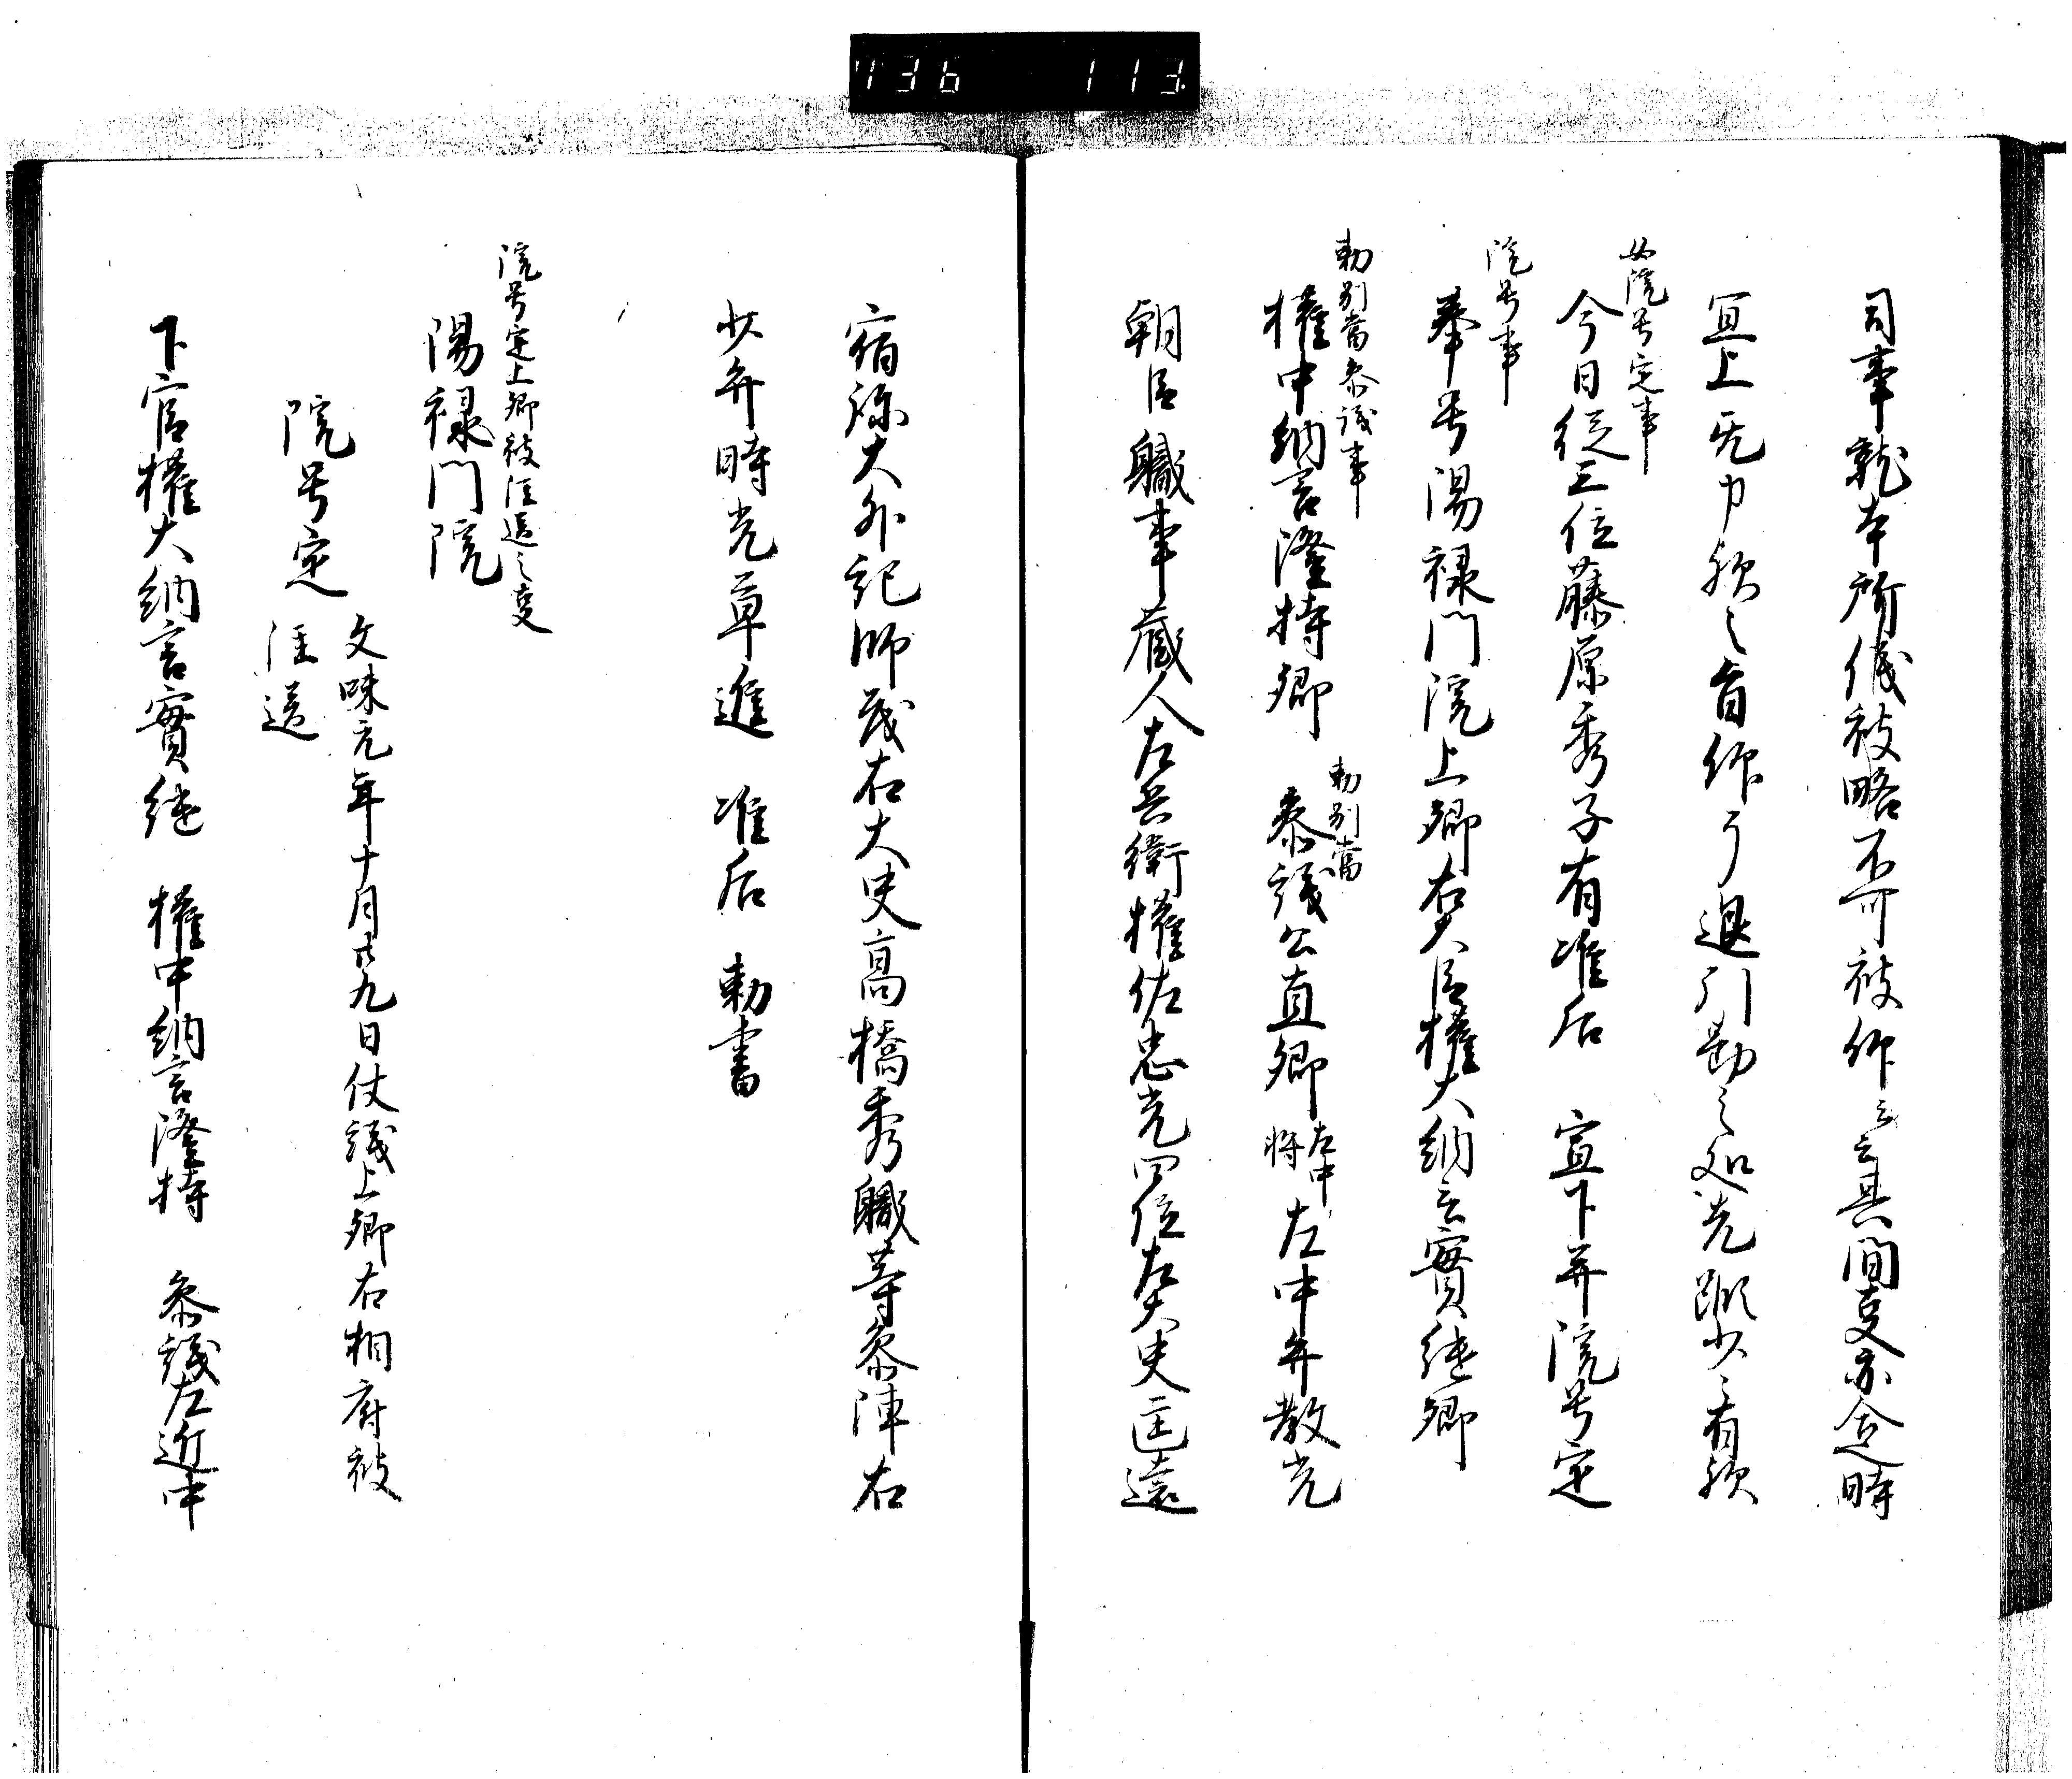 736 113
司事就本所儀被略不可被仰云々其間事亦念時
宜上無力欤之旨仰了退引勘之処先蹤少々有欤
女院号定事
今日従三位藤原秀子有准后 宣下并院号定
院号事
奉号陽禄門院上卿右大臣権大納言實継卿
勅別當参議事
権中納言隆持卿 参議公直卿左中将 左中弁教光
勅別當
朝臣職事蔵人左兵衛権佐忠光四位左大史匡遠
宿祢大外記師茂右大史高橋秀職等参陣右
少弁時光草進 准后 勅書
院号定上卿被注送之事
陽禄門院
文味元年十月廿九日仗議上卿右相府被
院号定 注送
下官権大納言實継 権中納言隆持 参議左近中